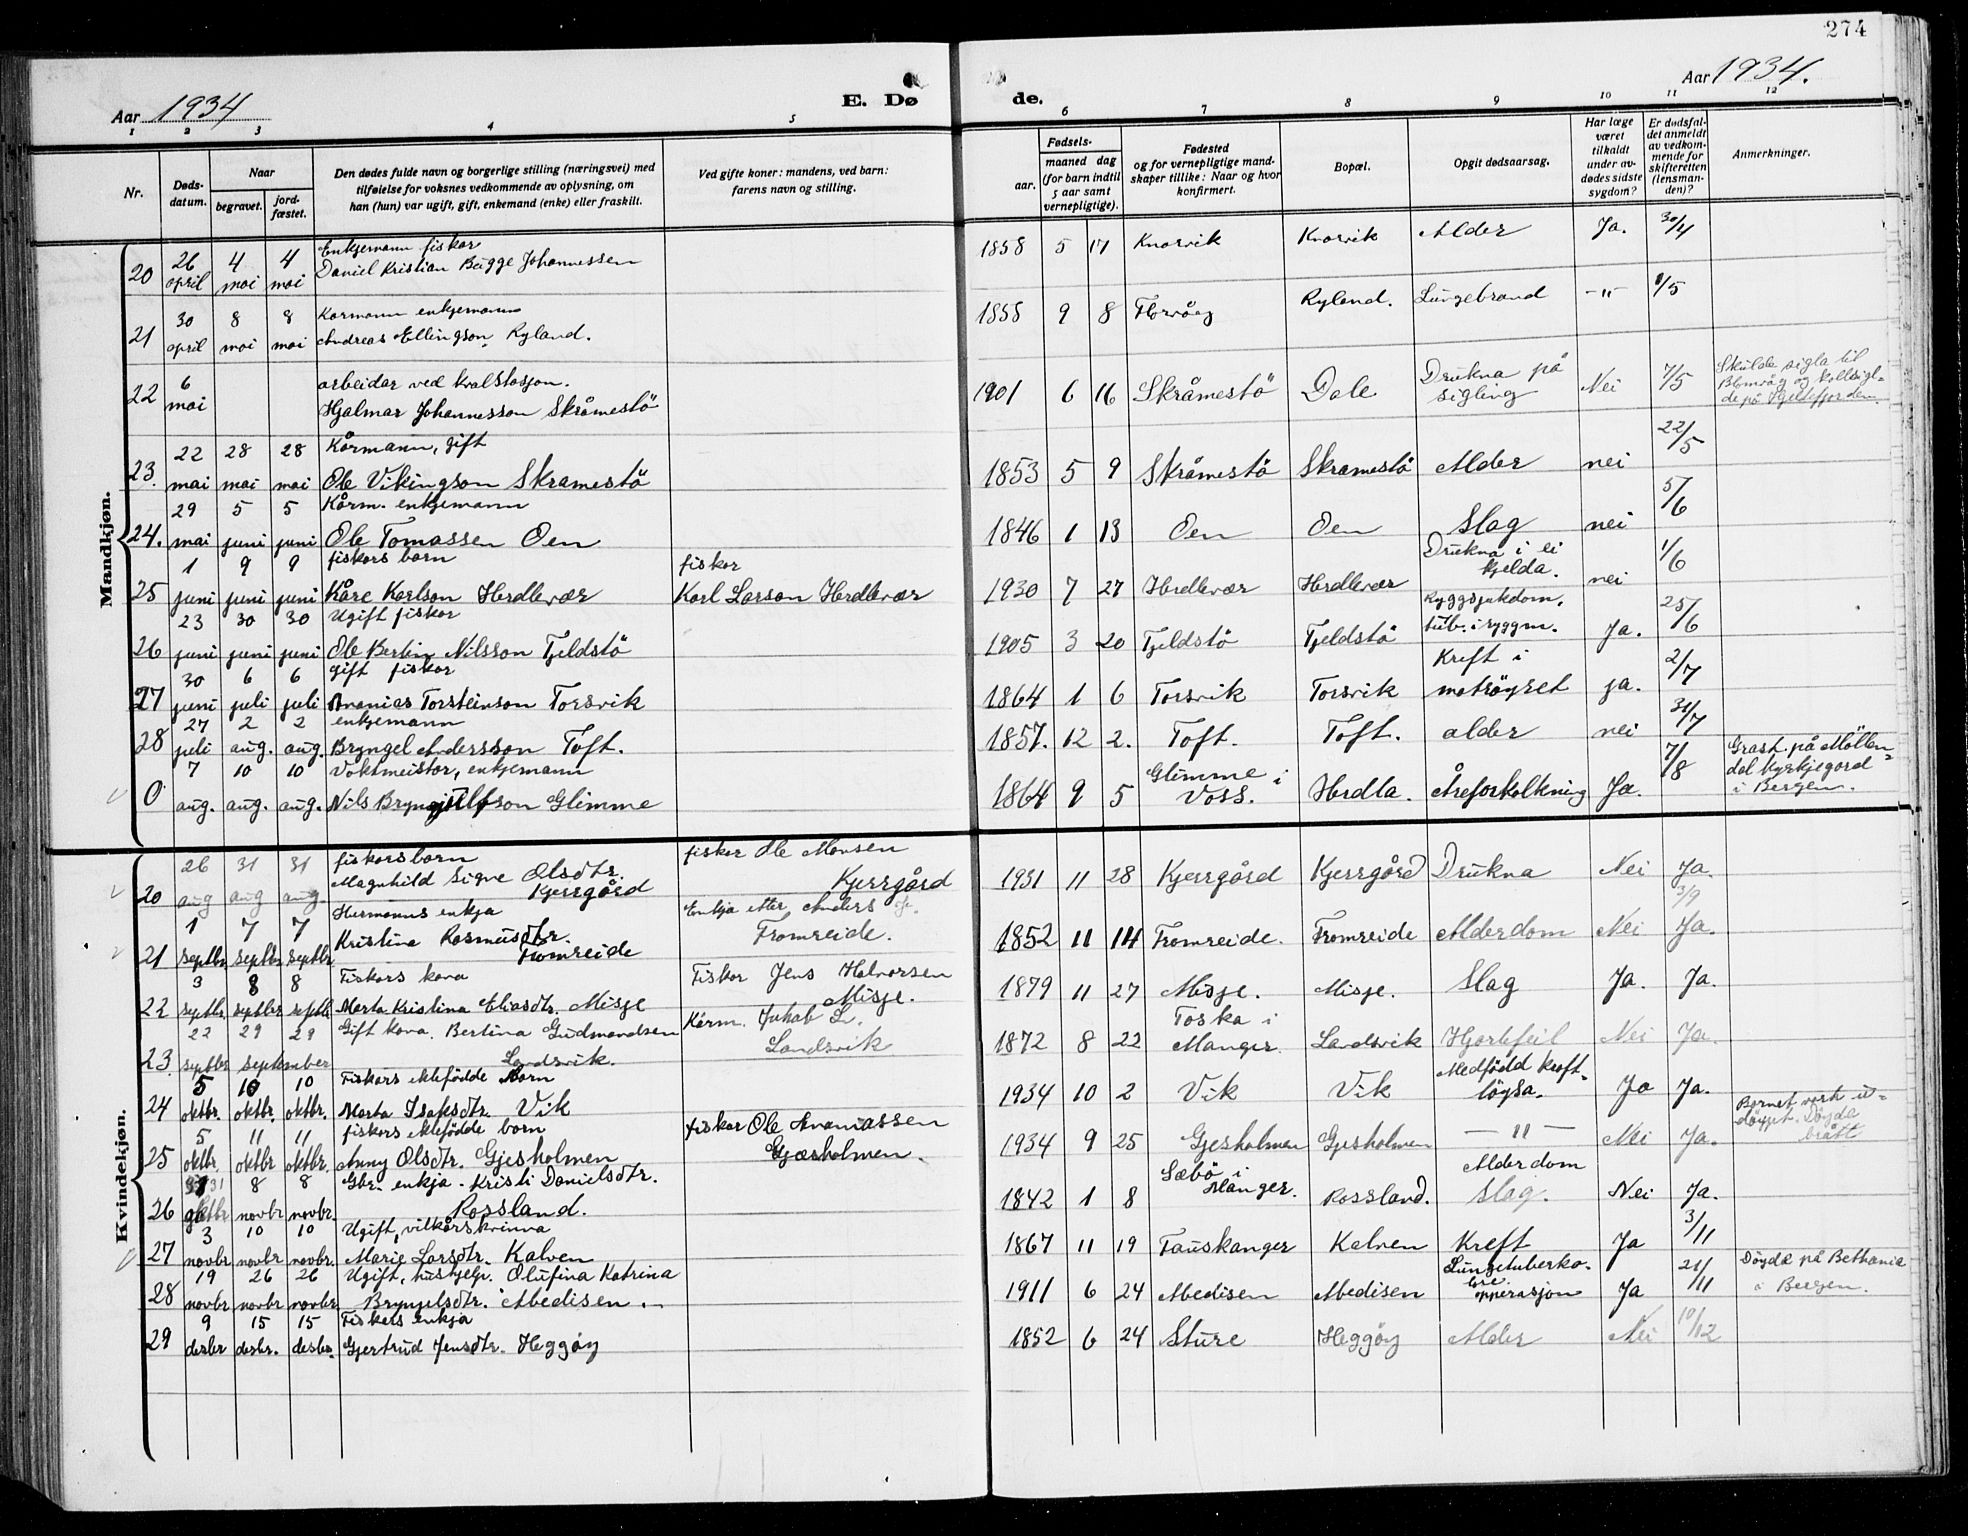 274
Aar 1934
E. Dø
de.
Aar 1934.
1 2 3 4 5 6 7 8 9 10 11 12
Nr.
Døds-
datum.
Naar
begravet.
jord-
fæstet.
Den dødes fulde navn og borgerlige stilling (næringsvei) med
tilføielse for voksnes vedkommende av oplysning, om
han (hun) var ugift, gift, enkemand (enke) eller fraskilt.
Ved gifte koner: mandens, ved barn:
farens navn og stilling.
Fødsels-
aar.
maaned dag
(for barn indtil
5 aar samt
vernepligtige).
Fødested
og for vernepligtige mand-
skaper tillike: Naar og hvor
konfirmert.
Bopæl.
Opgit dødsaarsag.
Har læge
været
tilkaldt
under av-
dødes sidste
sygdom?
Er dødsfal-
det anmeldt
av vedkom-
mende for
skifteretten
(lensman-
den)?
Anmerkninger.
Mandkjøn.
Enkjemann fiskar
20 26 april 4 mai 4 mai Daniel Kristian Bugge Johannessen 1858 5 17 Knarvik Knarvik Alder Ja. 30/4
Kårmann enkjemann
21 30 april 8 mai 8 mai Andreas Ellingson Ryland. 1858 9 8 Florvåg Ryland. Lungebrand -"- 1/5
arbeidar ved kvalstasjon.
22 6 mai Hjalmar Johannesson Skråmestö 1901 6 16 Skråmestö Dale Drukna på sigling Nei 7/5 Skulde sigla til
Blomvåg og kollsigl-
de på Hjeltefjorden.
Kårmann, gift
23. 22 mai 28 mai 28 mai Ole Vikingson Skramestö 1853 5 9 Skråmestö Skramestö Alder nei 22/5
Kårm. enkjemann
24. 29 mai 5 juni 5 juni Ole Tomassen Oen 1846 1 13 Oen Oen Slag nei 5/6
fiskars barn fiskar
25 1 juni 9 juni 9 juni Kåre Karlson Herdlevær Karl Larson Herdlevær 1930 7 27 Herdlevær Herdlevær Drukna i ei kjelda. nei 1/6
Ugift fiskar
26 23 juni 30 juni 30 juni Ole Bertin Nilsson Tjeldstö 1905 3 20 Tjeldstö Tjeldstö Ryggsjukdom. tub. i ryggm. Ja. 25/6
gift fiskar
27 30 juni 6 juli 6 juli Ananias Torsteinson Torsvik 1864 1 6 Torsvik Torsvik Kreft i matröyret ja. 2/7
enkjemann
28 27 juli 2 aug. 2 aug. Bryngel Andersson Toft. 1857. 12 2. Toft. Toft. alder nei 31/7
Vaktmeistar, enkjemann
0 7 aug. 10 aug. 10 aug. Nils Brynjulfson Glimme 1864 9 5 Glimme i Voss. Herdla. Åreforkalkning Ja. 7/8 Gravl. på Möllen-
dal Kyrkjegard
i Bergen.
Kvindekjøn.
fiskarsbarn fiskar Ole Monsen
20 26 aug 31 aug 31 aug. Magnhild Signe Olsdtr. Kjerrgård Kjerrgård 1931 11 28 Kjerrgård Kjerrgård Drukna Nei Ja. 3/9
Hermanns enkja Enkja etter Anders
21 1 septbr. 7 septbr. 7 septbr. Kristina Rasmusdtr. Fromreide Fromreide. 1852 11 14 Fromreide. Fromreide Alderdom Nei Ja.
Fiskars kona Fiskar Jens Halvorsen
22 3 septbr. 8 septbr. 8 septbr. Marta Kristina Eliasdtr. Misje Misje. 1879 11 27 Misje. Misje. Slag Ja. Ja.
Gift kona. Bertina Gudmundsen Kårm. Jakob L.
23. 22 septbr 29 29 september Landsvik. Landsvik 1872 8 22 Toska i Manger Landsvik Hjartefeil Nei Ja.
Fiskars ektefödde barn
24 5 oktbr. 10 oktbr. 10 oktbr. Marta Isaksdtr. Vik 1934 10 2 Vik Vik Medfödd kraft- löysa. Ja Ja.
fiskars ektefödde born fiskar Ole Ananiassen
25 5 oktbr. 11 oktbr. 11 oktbr. Anny Olsdtr. Gjesholmen Gjæsholmen. 1934 9 25 Gjesholmen Gjesholmen -"- Nei Ja. Bornet vart u-
döypt. Döyda
brått
Gbr. enkja. Kristi Danielsdtr.
26 31 oktbr 8 novbr 8 novbr. Rossland. 1842 1 8 Sæbö i Manger. Rossland. Alderdom Slag. Nei Ja.
Ugift, vilkårskvinna
27 3 novbr 10 novbr 10 novbr. Marie Larsdtr. Kalven 1867 11 19 Tauskanger Kalven Kreft Ja 3/11
Ugift, hushjelp. Olufina Katrina
28 19 novbr 26 novbr 26 novbr Bryngelsdtr. Abedisen 1911 6 24 Abedisen Abedisen Lungetuberko- lose. opperasjon Ja 21/11 Döydde på Bethania
i Bergen.
Fiskars enkja
29 9 desbr 15 desbr. 15 desbr. Gjertrud Jensdtr. Heggöy 1852 6 24 Sture Heggöy Alder Nei 10/12